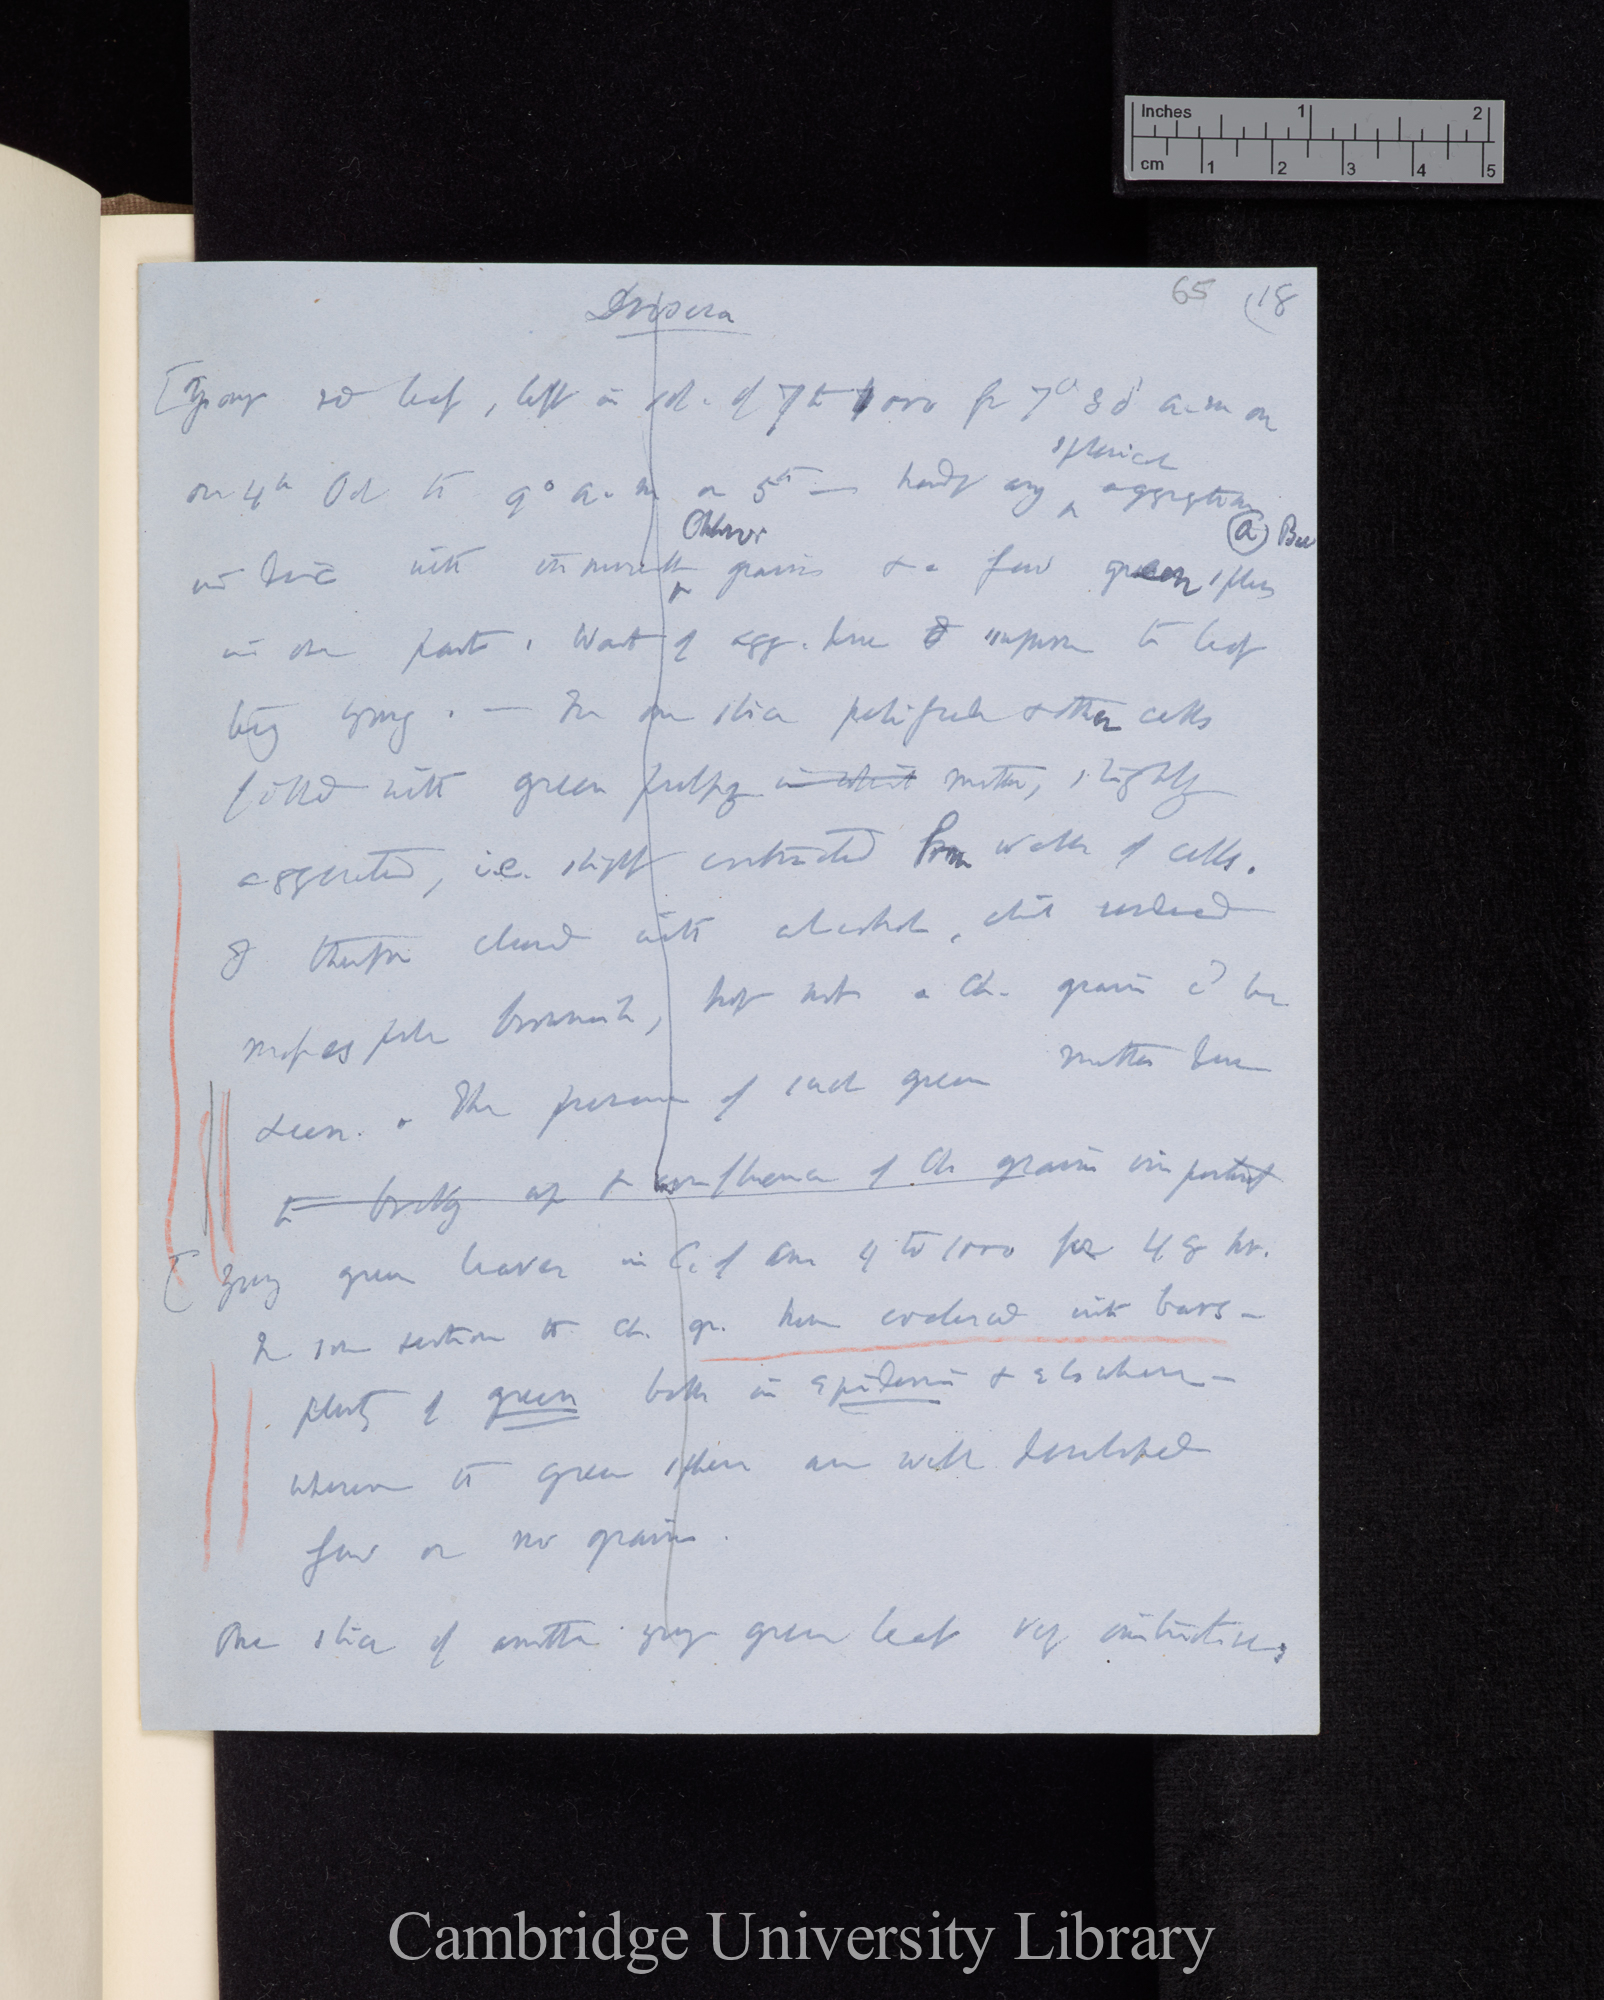 Inches 1 2
cm 1 2 3 4 5
65 (18
Drosera
[Young red leaf, left in sol. of 7 to 1000 for 7° 30' a.m on
on 4th Oct to 9° a.m on 5th — hardly any spherical aggregation
Chlor. (a) But
with innumerable grains & a few green spheres
in one part. Want of agg. due I suppose to leaf
being young. — In one slice & other cells
filled with green pulpy matter, slightly
aggregated, i.e. slightly contracted from walls of cells.
I therefore cleared with alcohol, which rendered
pale brownish, but not a Ch. grain cd be
seen. The presence of such green matter due
to breaking up & confluence of Ch grains important
[Young green leaves in C. of Am 4 to 1000 for 48 hr.
In some sections the Ch. gr. have coalesced into bars —
plenty of green both in Epidermis & elsewhere —
wherever the green spheres are well developed
few or no grains.
One slice of another young green leaf very instructive,
Cambridge University Library